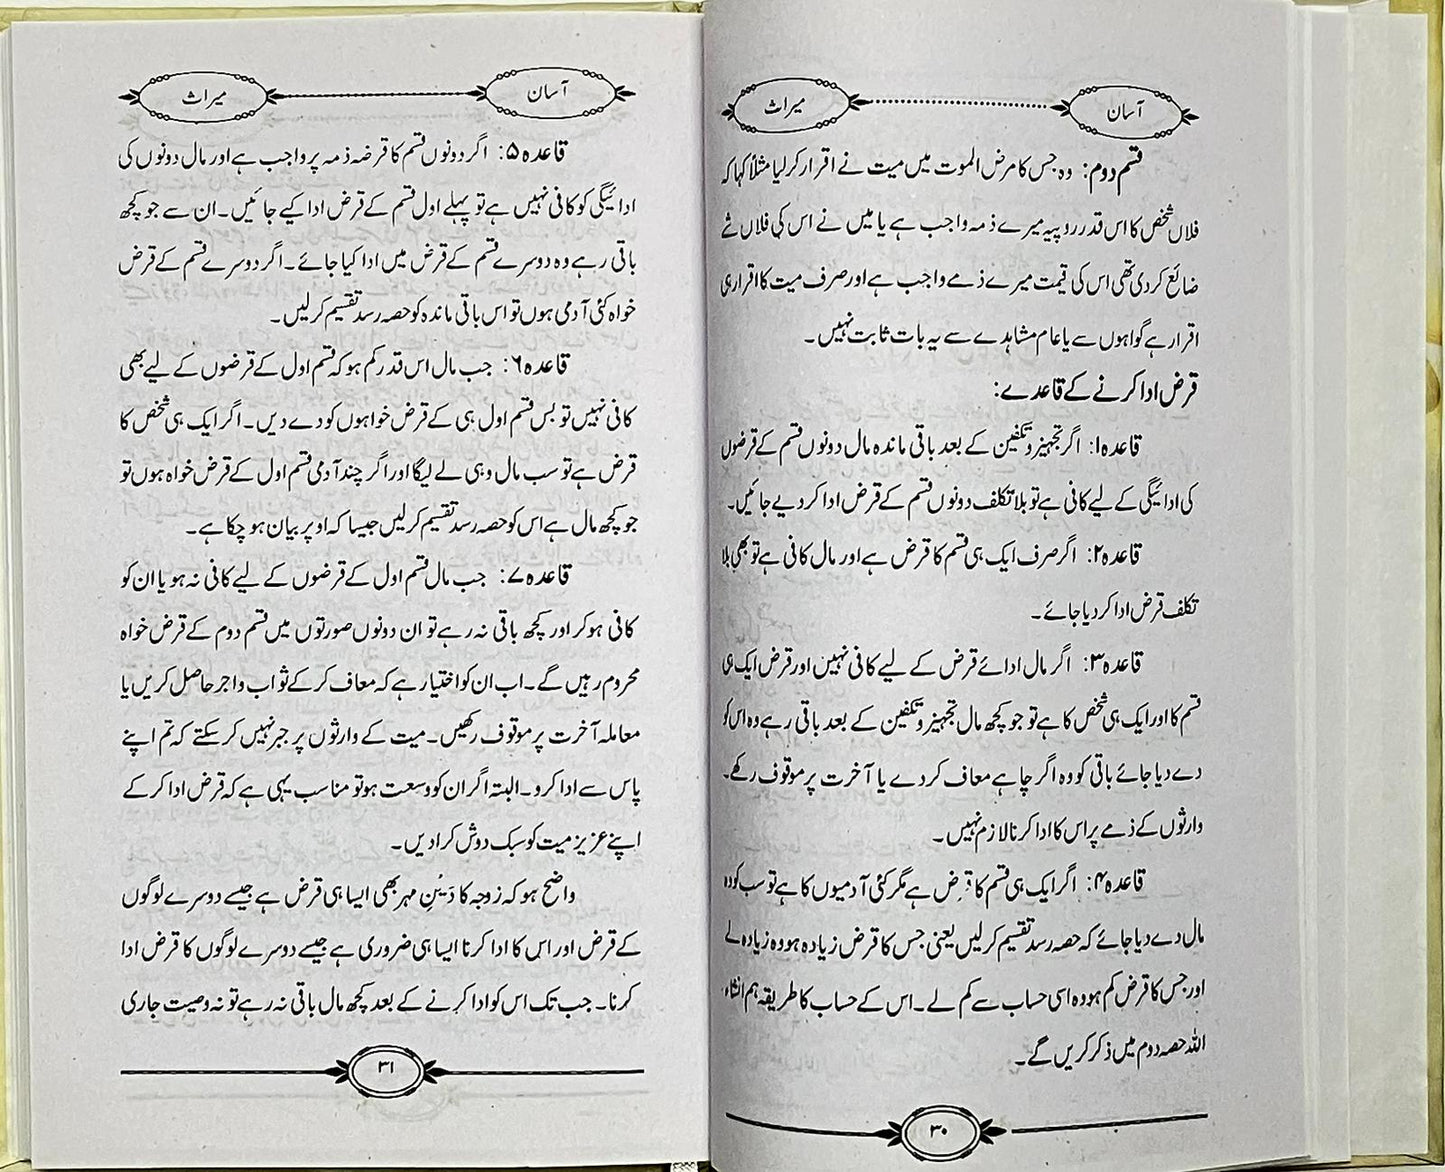 آسان
میراث
قسم دوم: وہ جس کا مرض الموت میں میت نے اقرار کرلیا مثلاً کہا کہ
فلاں شخص کا اس قدر روپیہ میرے ذمہ واجب ہے یا میں نے اس کی فلاں شے
ضائع کردی تھی اس کی قیمت میرے ذمے واجب ہے اور صرف میت کا اقرار ہی
اقرار ہے گواہوں سے یا عام مشاہدے سے یہ بات ثابت نہیں۔
قرض ادا کرنے کے قاعدے:
قاعدہ۱: اگر تجہیز و تکفین کے بعد باقی ماندہ مال دونوں قسم کے قرضوں
کی ادائیگی کے لیے کافی ہے تو بلا تکلف دونوں قسم کے قرض ادا کر دیے جائیں۔
قاعدہ۲: اگر صرف ایک ہی قسم کا قرض ہے اور مال کافی ہے تو بھی بلا
تکلف قرض ادا کر دیا جائے۔
قاعدہ۳: اگر مال ادائے قرض کے لیے کافی نہیں اور قرض ایک ہی
قسم کا اور ایک ہی شخص کا ہے تو جو کچھ مال تجہیز و تکفین کے بعد باقی رہے وہ اس کو
دے دیا جائے باقی کو وہ اگر چاہے معاف کر دے یا آخرت پر موقوف رکھے۔
وارثوں کے ذمے پر اس کا ادا کرنا لازم نہیں۔
قاعدہ۴: اگر ایک ہی قسم کا قرض ہے مگر کئی آدمیوں کا ہے تو سب کو وہ
مال دے دیا جائے کہ حصہ رسد تقسیم کرلیں یعنی جس کا قرض زیادہ ہو وہ زیادہ لے
اور جس کا قرض کم ہو وہ اسی حساب سے کم لے۔ اس کے حساب کا طریقہ ہم انشاء
اللہ حصہ دوم میں ذکر کریں گے۔
۳۰
آسان
میراث
قاعدہ۵: اگر دونوں قسم کا قرضہ ذمہ پر واجب ہے اور مال دونوں کی
ادائیگی کو کافی نہیں ہے تو پہلے اول قسم کے قرض ادا کیے جائیں۔ ان سے جو کچھ
باقی رہے وہ دوسرے قسم کے قرض میں ادا کیا جائے۔ اگر دوسرے قسم کے قرض
خواہ کئی آدمی ہوں تو اس باقی ماندہ کو حصہ رسد تقسیم کرلیں۔
قاعدہ۶: جب مال اس قدر کم ہو کہ قسم اول کے قرضوں کے لیے بھی
کافی نہیں تو بس قسم اول ہی کے قرض خواہوں کو دے دیں۔ اگر ایک ہی شخص کا
قرض ہے تو سب مال وہی لے لیگا اور اگر چند آدمی قسم اول کے قرض خواہ ہوں تو
جو کچھ مال ہے اس کو حصہ رسد تقسیم کرلیں جیسا کہ اوپر بیان ہو چکا ہے۔
قاعدہ۷: جب مال قسم اول کے قرضوں کے لیے کافی نہ ہو یا ان کو
کافی ہو کر اور کچھ باقی نہ رہے تو ان دونوں صورتوں میں قسم دوم کے قرض خواہ
محروم رہیں گے۔ اب ان کو اختیار ہے کہ معاف کر کے ثواب و اجر حاصل کریں یا
معاملہ آخرت پر موقوف رکھیں۔ میت کے وارثوں پر جبر نہیں کر سکتے کہ تم اپنے
پاس سے ادا کرو۔ البتہ اگر ان کو وسعت ہو تو مناسب یہی ہے کہ قرض ادا کر کے
اپنے عزیز میت کو سبک دوش کرا دیں۔
واضح ہو کہ زوجہ کا دَینِ مہر بھی ایسا ہی قرض ہے جیسے دوسرے لوگوں
کے قرض اور اس کا ادا کرنا ایسا ہی ضروری ہے جیسے دوسرے لوگوں کا قرض ادا
کرنا۔ جب تک اس کو ادا کرنے کے بعد کچھ مال باقی نہ رہے تو نہ وصیت جاری
۳۱